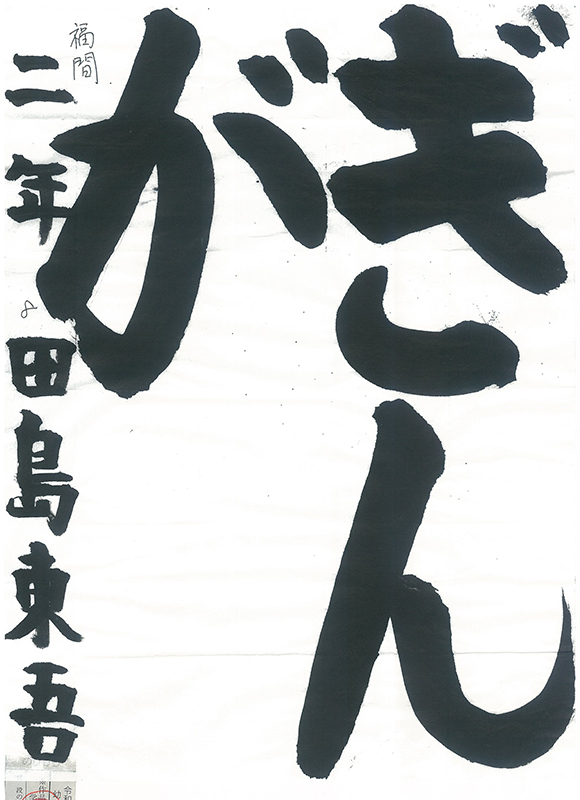 ぎん
が
二年 田島東吾
福間